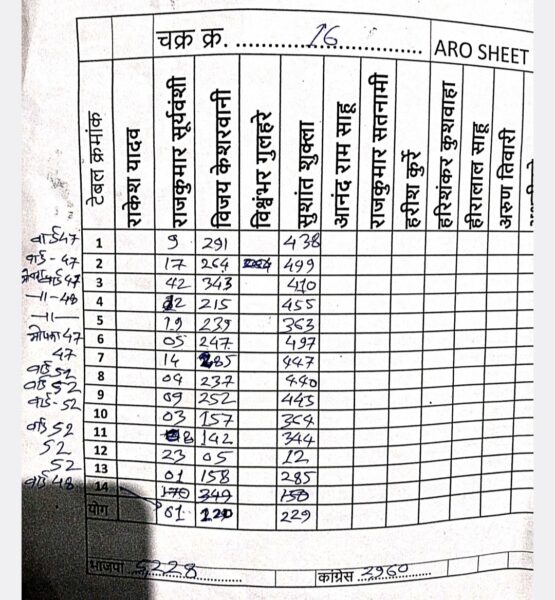 चक्र क्र. 16 ARO SHEET
टेबल क्रमांक राकेश यादव राजकुमार सूर्यवंशी विजय केशरवानी विश्वंभर गुलहरे सुशांत शुक्ला आनंद राम साहू राजकुमार सतनामी हरीश कुर्रे हरिशंकर कुशवाहा हीरालाल साहू अरुण तिवारी
वार्ड 47 1 9 291 438
वार्ड - 47 2 17 264 499
47 3 42 343 410
-11-48 4 12 215 455
-11- 5 19 239 363
मोपका 47 6 05 247 497
47 7 14 285 447
वार्ड 52 8 04 237 440
वार्ड 52 9 09 252 443
वार्ड - 52 10 03 157 364
वार्ड 52 11 8 142 344
52 12 23 05 12
52 13 01 158 285
वार्ड 48 14 170 349 150
योग 01 120 229
भाजपा 5228 कांग्रेस 2960